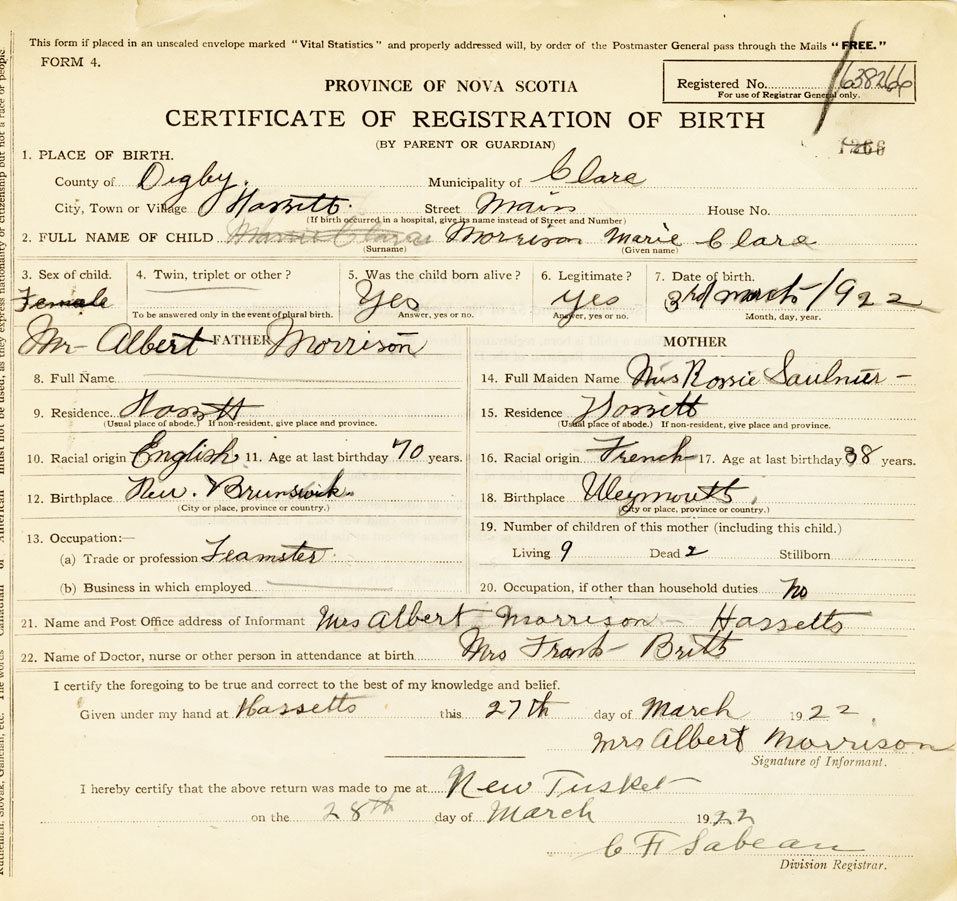 This form if placed in an unsealed envelope marked "Vital Statistics" and properly addressed will, by order of the Postmaster General pass through the Mails "FREE."
FORM 4.
PROVINCE OF NOVA SCOTIA
Registered No. 638266
For use of Registrar General only.
CERTIFICATE OF REGISTRATION OF BIRTH
(BY PARENT OR GUARDIAN)
1266
1. PLACE OF BIRTH.
County of Digby. Municipality of Clare
City, Town or Village Hassett. Street Main House No.
(If birth occurred in a hospital, give its name instead of Street and Number)
2. FULL NAME OF CHILD Morrison Marie Clare
(Surname) (Given name)
3. Sex of child. 4. Twin, triplet or other? 5. Was the child born alive? 6. Legitimate? 7. Date of birth.
Female Yes yes 3rd March 1922
To be answered only in the event of plural birth. Answer, yes or no. Answer, yes or no. Month, day, year.
Mr Albert FATHER Morrison MOTHER
8. Full Name 14. Full Maiden Name Miss Rossie Saulnier
9. Residence Hassett 15. Residence Hassett
(Usual place of abode.) If non-resident, give place and province. (Usual place of abode.) If non-resident, give place and province.
10. Racial origin English 11. Age at last birthday 70 years. 16. Racial origin French 17. Age at last birthday 38 years.
12. Birthplace New Brunswick. 18. Birthplace Weymouth
(City or place, province or country.) (City or place, province or country.)
13. Occupation:— 19. Number of children of this mother (including this child.)
(a) Trade or profession Teamster Living 9 Dead 2 Stillborn
(b) Business in which employed 20. Occupation, if other than household duties no
21. Name and Post Office address of Informant Mrs Albert Morrison - Hassetts
22. Name of Doctor, nurse or other person in attendance at birth Mrs Frank Britt
I certify the foregoing to be true and correct to the best of my knowledge and belief.
Given under my hand at Hassetts this 27th day of March 1922
Mrs Albert Morrison
Signature of Informant.
I hereby certify that the above return was made to me at New Tusket
on the 28th day of March 1922
C F Sabean
Division Registrar.